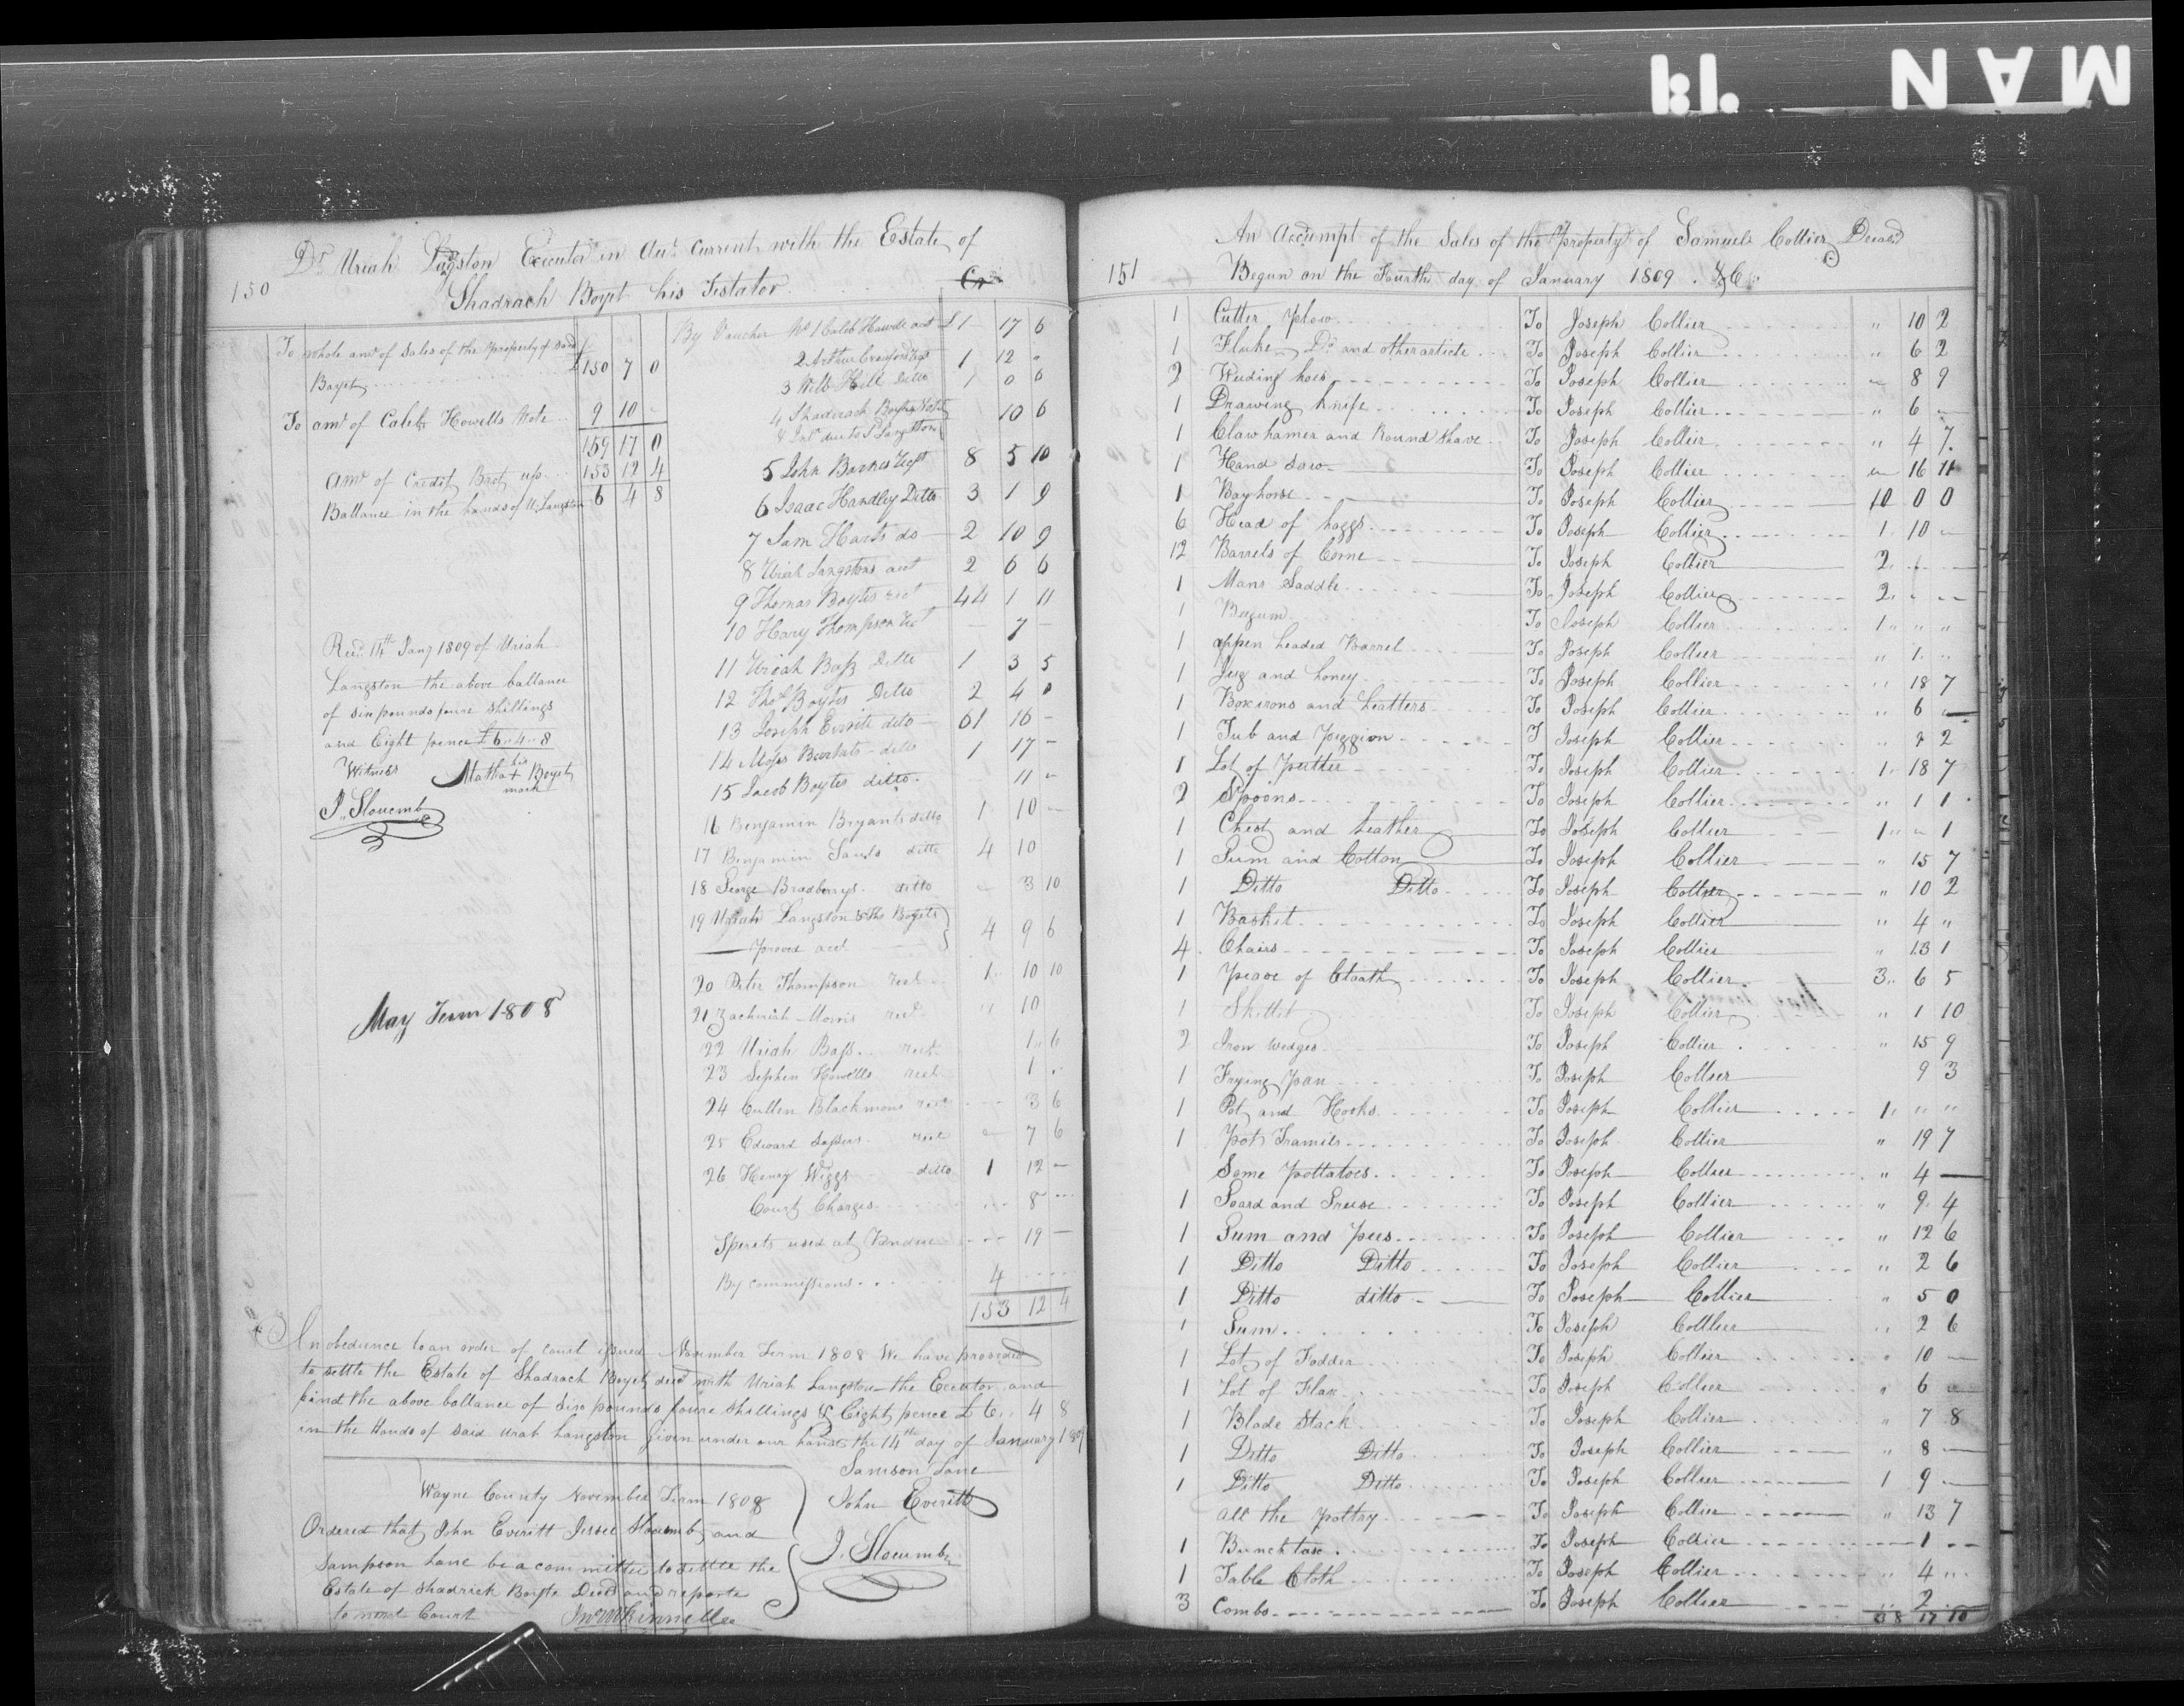 MAN 1:1.
150
Dr. Uriah Langston Executor in Acct. Current with the Estate of
Shadrach Boyet his Testator Cr
To whole amt. of Sales of the Property of Said
Boyet £150 7 0
To amt. of Caleb Howells Note 9 10 -
159 17 0
Amt. of Credit Brot. up 153 12 4
Ballance in the hands of U. Langston 6 4 8
Recd. 14th Jany 1809 of Uriah
Langston the above ballance
of six pounds foure shillings
and Eight pence £6..4..8
Witness his
Matha + Boyet
mark
J. Slocumb
May Term 1808
By Voucher No 1 Caleb Howell act £1 17 6
2 Arthur Crawford 1 12 "
3 Will Hill Ditto 1 0 6
4 Shadrach Boyts Note
& Int. due to S Langston 10 6
5 John Barnes Rect 8 5 10
6 Isaac Handley Ditto 3 1 9
7 Sam Harts do 2 10 9
8 Uriah Langstons act 2 6 6
9 Thomas Boytes rect 44 1 11
10 Hary Thompson Rect - 7 -
11 Uriah Bass Ditto 1 3 5
12 Thos Boytes Ditto 2 4 0
13 Joseph Everite dito 61 16 -
14 Moses ditto 1 17 -
15 Jacob Boytes ditto 11 -
16 Benjamin Bryants ditto 1 10 -
17 Benjamin Sauls ditto 4 10
18 George Bradberrys ditto - 3 10
19 Uriah Langston & Tho Boyets
proved act 4 9 6
20 Peter Thompson rect 1 10 10
21 Zachriah Morris rect " 10
22 Uriah Bass rect 1 6
23 Sephen Howells rect 1 .
24 Cullen Blackmons rect 3 6
25 Edward rect - 7 6
26 Henry Wiggs ditto 1 12 -
Court Charges 8
Sperets used at Vandue 19 -
By commissions 4
153 12 4
In obedience to an order of court issued November Term 1808 We have proseded
to settle the Estate of Shadrach Boyet decd with Uriah Langston the Executor and
find the above ballance of Six pounds foure shillings & Eight pence £6.. 4 8
in the Hands of said Uriah Langston Given under our hands the 14th day of January 1809
Samson Lane
Wayne County November Term 1808 John Everitt
Ordered that John Everitt Jessee Slocumb and
J. Slocumb
Sampson Lane be a committee to settle the
Estate of Shadrick Boyte Decd and reporte
to next Court Jno McKinnell
151
An Accumpt of the Sales of the Property of Samuel Collier Decasd
Begun on the Fourth day of January 1809 . &C
1 Cutter plow To Joseph Collier " 10 2
1 Fluke Do and other article To Joseph Collier " 6 2
2 Weeding hoes To Joseph Collier " 8 9
1 Drawing Knife To Joseph Collier " 6 -
1 Claw hamer and Round shave To Joseph Collier " 4 7
1 Hand Saw To Joseph Collier " 16 11
1 Bay horse To Joseph Collier 10 0 0
6 Head of hoggs To Joseph Collier 1 10 -
12 Barrels of Corne To Joseph Collier 2 . -
1 Mans Saddle To Joseph Collier 2 . -
1 Begum To Joseph Collier 1 " "
1 oppen headed Barrel To Joseph Collier " 1 "
1 Jug and honey To Joseph Collier " 18 7
1 Box irons and heatters To Joseph Collier " 6 -
1 Tub and piggion T Joseph Collier " 9 2
1 Lot of Putter To Joseph Collier 1 18 7
2 Spoons To Joseph Collier " 1 1
1 Chest and Leather To Joseph Collier 1 " 1
1 Gum and Cotton To Joseph Collier " 15 7
1 Ditto Ditto To Joseph Collier " 10 2
1 Basket To Joseph Collier " 4 "
4 Chairs To Joseph Collier " 13 1
1 Peace of Cloath To Joseph Collier 3 6 5
1 Skillet To Joseph Collier " 1 10
2 Iron Wedges To Joseph Collier " 15 9
1 Frying pan To Joseph Collier 9 3
1 Pot and Hooks To Joseph Collier 1 " "
1 Pot Tramils To Joseph Collier " 19 7
Some Pottatoes To Joseph Collier " 4 -
1 Goard and Grease To Joseph Collier " 9 4
1 Gum and Pees To Joseph Collier " 12 6
1 Ditto Ditto To Joseph Collier " 2 6
1 Ditto ditto To Joseph Collier " 5 0
1 Gum To Joseph Collier " 2 6
1 Lot of Fodder To Joseph Collier " 10 -
1 Lot of Flax To Joseph Collier " 6 -
1 Blade Stack To Joseph Collier " 7 8
1 Ditto Ditto To Joseph Collier " 8 -
1 Ditto Ditto To Joseph Collier 1 9 -
all the Poltry To Joseph Collier " 13 7
1 Bunch tow To Joseph Collier 1 -
1 Table Cloth To Joseph Collier " 4 "
3 Combs To Joseph Collier " 2
38 17 10